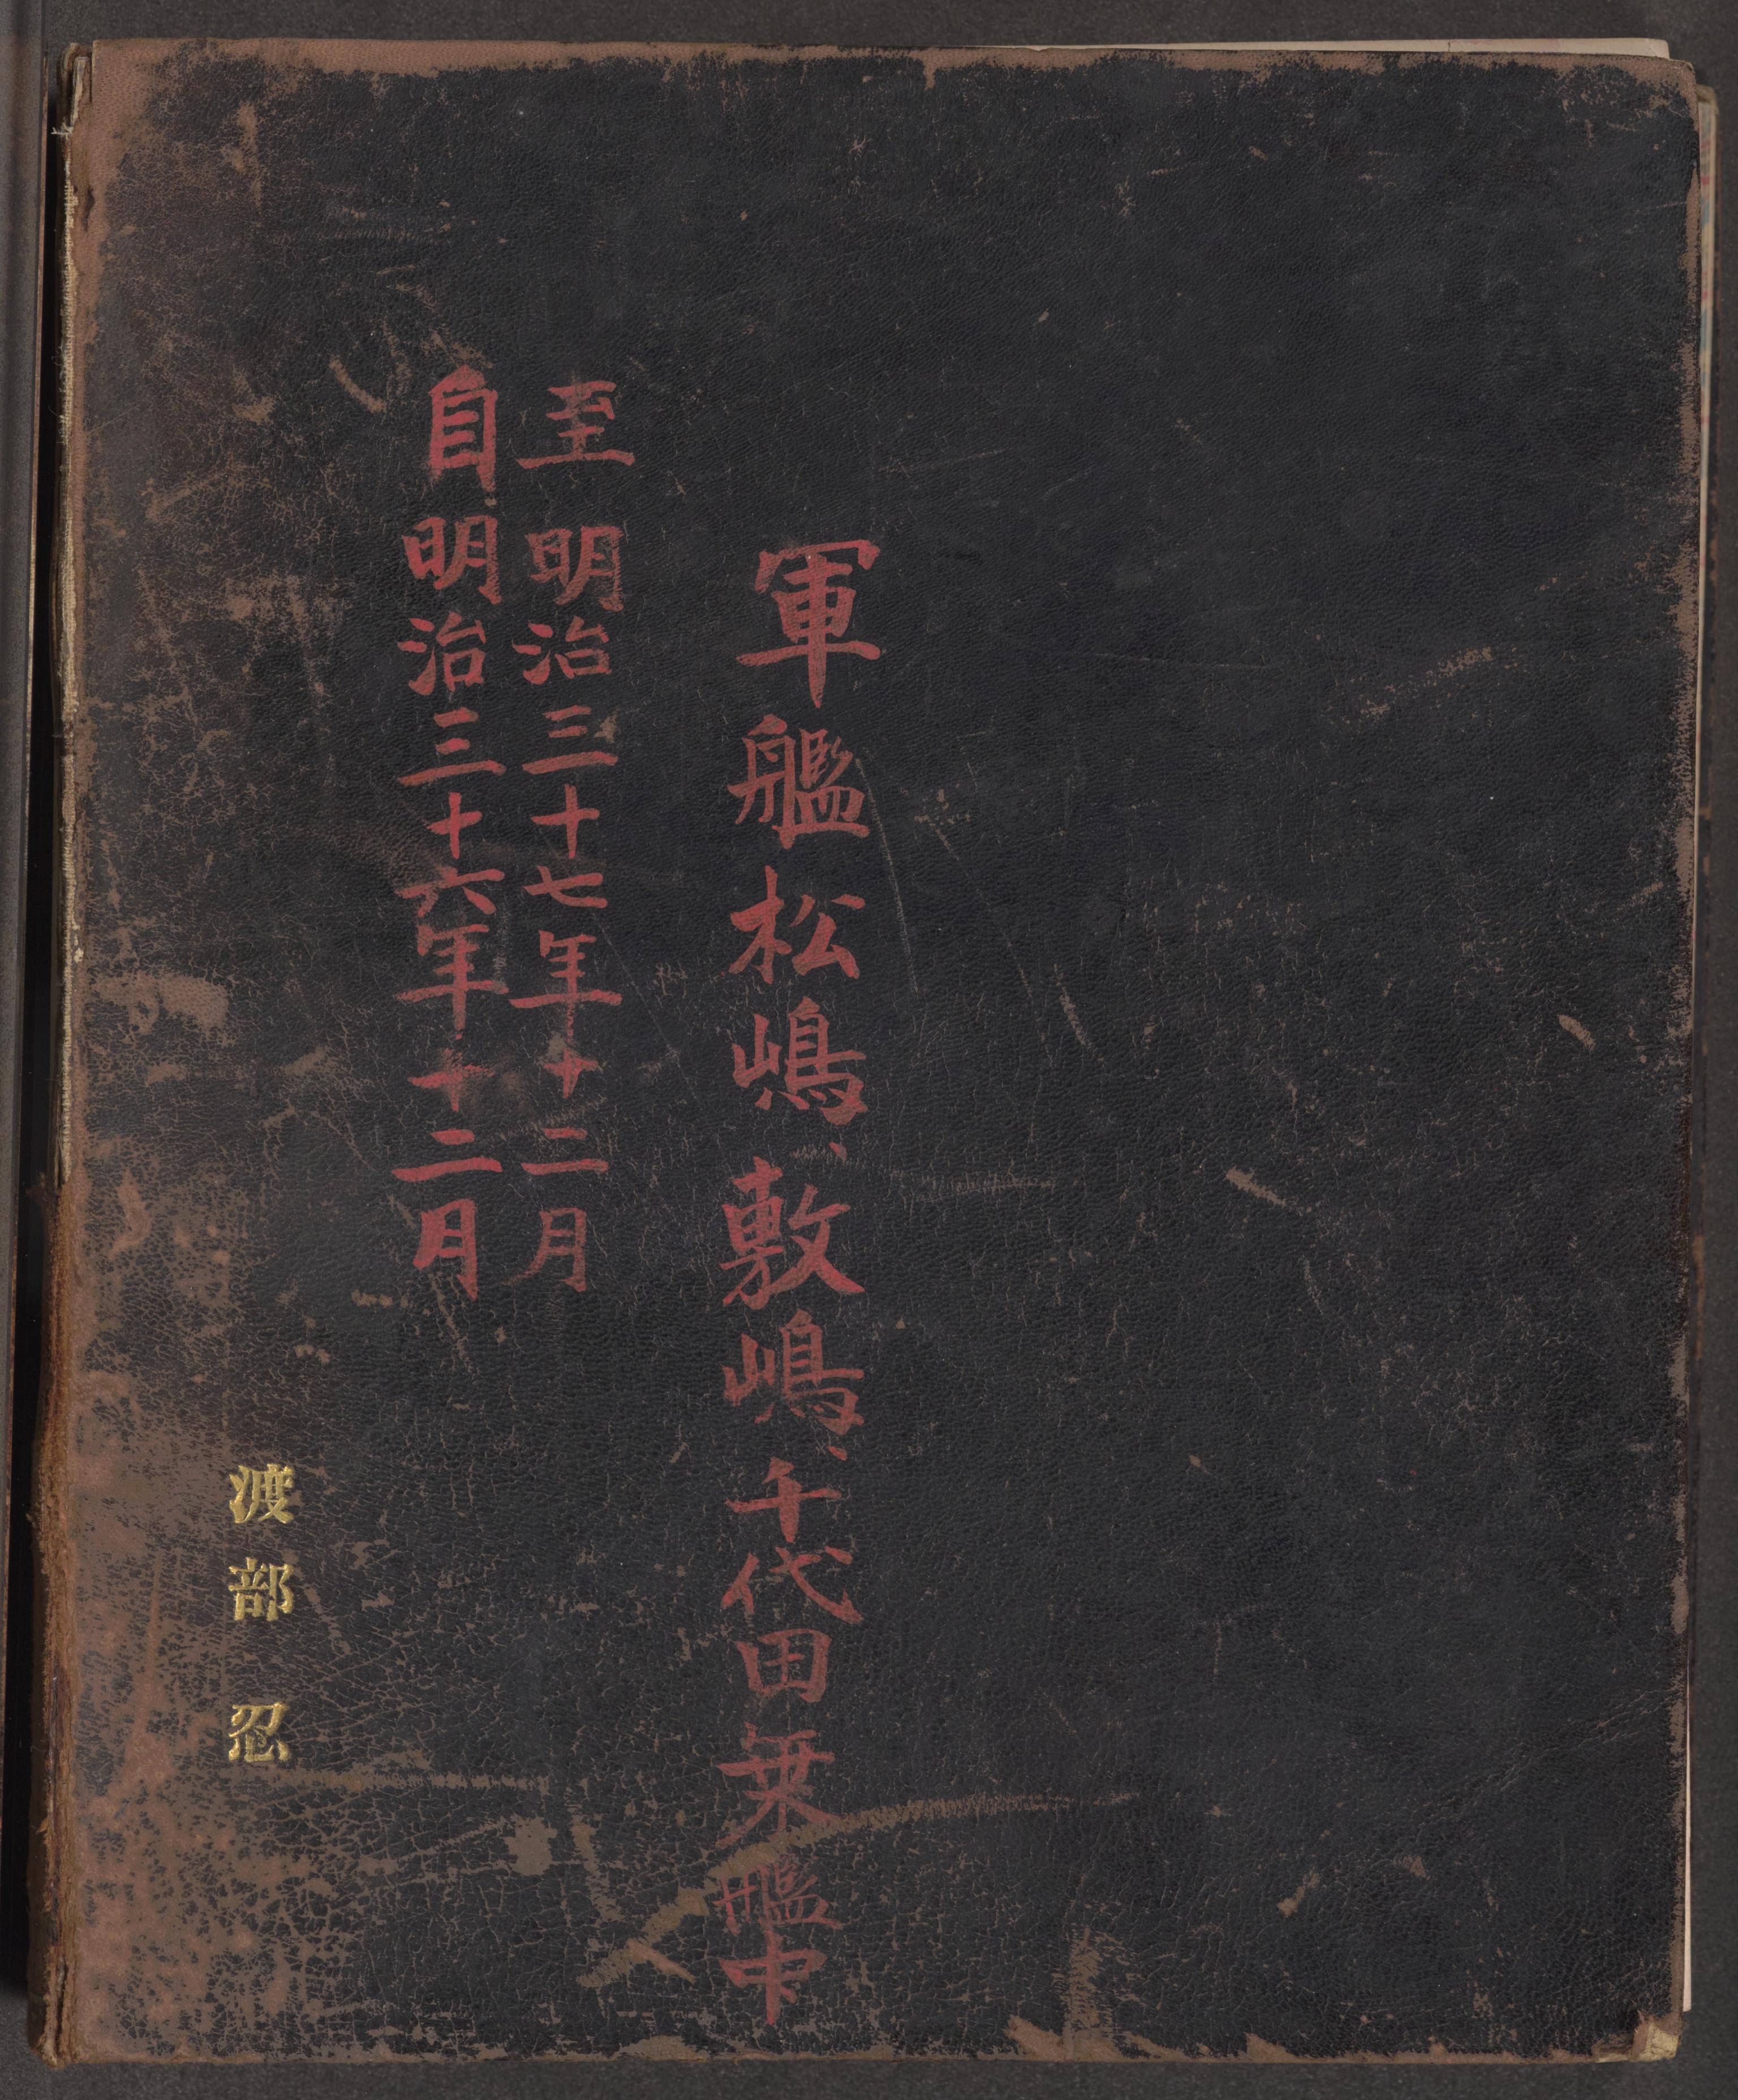 軍艦松嶋、敷嶋、千代田乗艦中
至明治三十七年十二月
自明治三十六年十二月
渡部忍